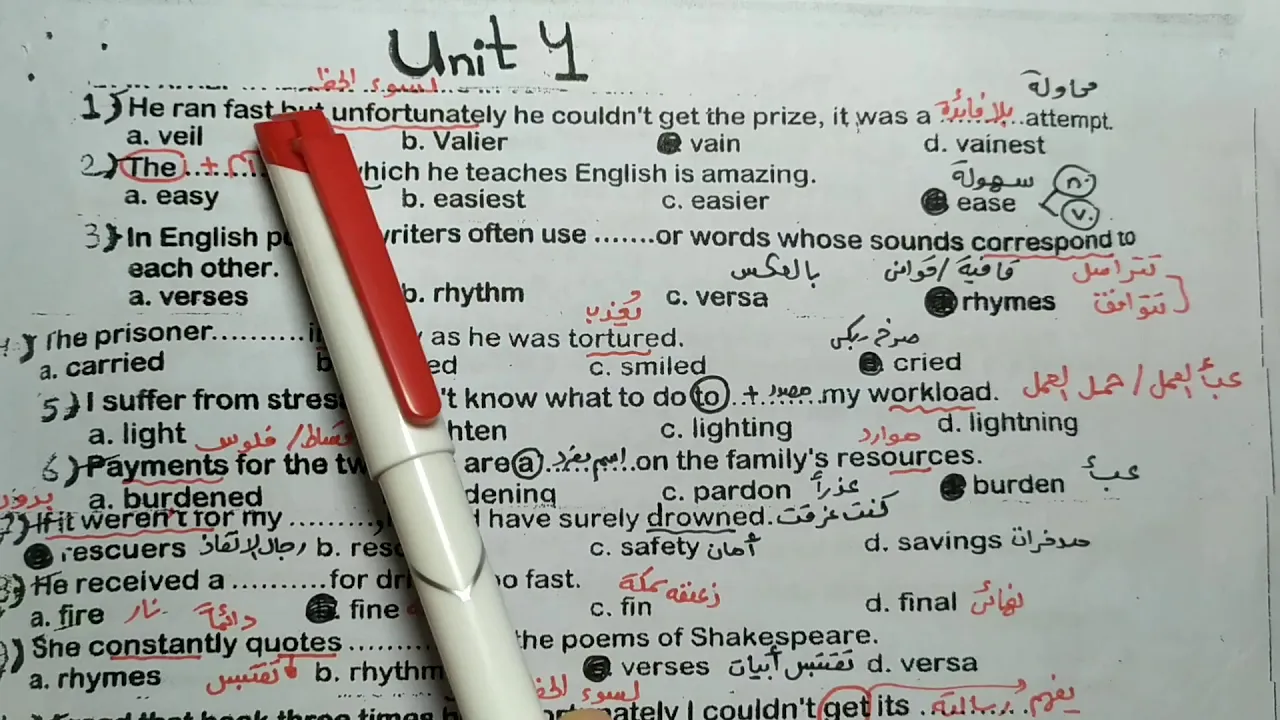 Unit 1
لسوء الحظ
محاولة
1) He ran fast but unfortunately he couldn't get the prize, it was a بلا فائدة attempt.
a. veil b. Valier vain d. vainest
2) The + which he teaches English is amazing.
سهولة n. v.
a. easy b. easiest c. easier ease
3) In English writers often use .......or words whose sounds correspond to
each other. بالعكس قافية / قوافى تتراسل
a. verses b. rhythm c. versa rhymes تتوافق
يُعذب صرخ - بكى
The prisoner.......... as he was tortured.
a. carried c. smiled cried
5) I suffer from know what to do to + مصدر my workload. عبأ العمل / حمل العمل
a. light c. lighting d. lightning
موارد
6) Payments for the are a اسم مفرد on the family's resources.
a. burdened c. pardon عذراً burden عبء
7) If it weren't for my ........., have surely drowned. كنت غرقت
rescuers رجال الإنقاذ b. c. safety أمان d. savings مدخرات
He received a ..........for too fast.
a. fire نار fine c. fin زعنفه سمكة d. final نهائى
دائمًا
She constantly quotes the poems of Shakespeare.
a. rhymes تقتبس b. rhythm verses تقتبس أبيات d. versa
لسوء الحظ
that book three times I couldn't get its رسالة يفهم